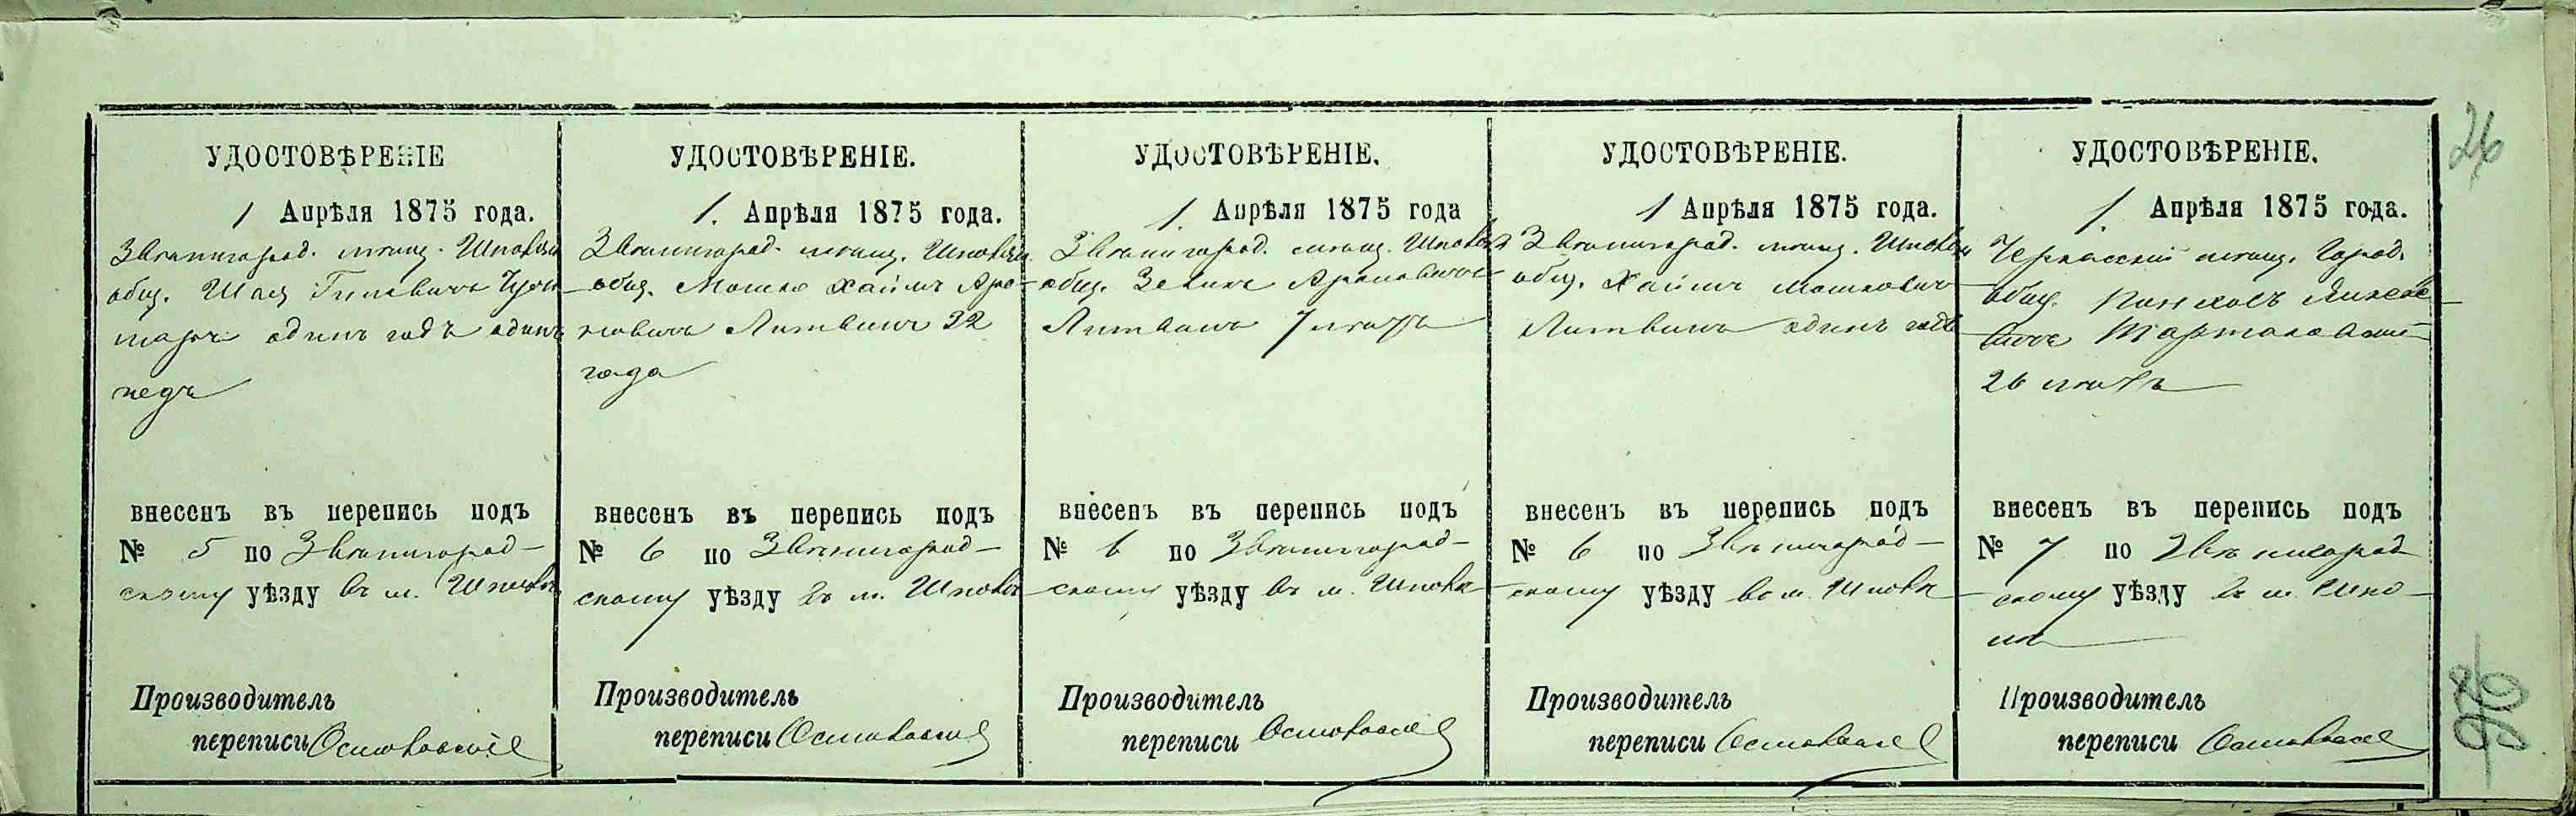 УДОСТОВѢРЕНІЕ
1 Апрѣля 1875 года.
Звенигород. мѣщ. Шполян
общ. Шая
одинъ годъ одинъ
внесенъ въ перепись подъ
№ 5 по Звенигород-
скому уѣзду въ м. Шполѣ
Производитель
переписи
УДОСТОВѢРЕНІЕ.
1. Апрѣля 1875 года.
Звенигород. мѣщ. Шполян
общ. Мошко Хаимъ Аро-
новичъ Литвинъ 32
года
внесенъ въ перепись подъ
№ 6 по Звенигород-
скому уѣзду въ м. Шполѣ
Производитель
переписи
УДОСТОВѢРЕНІЕ.
1. Апрѣля 1875 года
Звенигород. мѣщ. Шполян
общ. Зельик Ароновичъ
Литвинъ 7 лѣтъ
внесенъ въ перепись подъ
№ 6 по Звенигород-
скому уѣзду въ м. Шполѣ
Производитель
переписи
УДОСТОВѢРЕНІЕ.
1 Апрѣля 1875 года.
Звенигород. мѣщ. Шполян
общ. Хаимъ Мошковичъ
Литвинъ одинъ годъ
внесенъ въ перепись подъ
№ 6 по Звенигород-
скому уѣзду въ м. Шполѣ
Производитель
переписи
УДОСТОВѢРЕНІЕ.
1. Апрѣля 1875 года.
Черкасский мѣщ. Город.
общ. Пинхосъ
26 лѣтъ
внесенъ въ перепись подъ
№ 7 по Звенигород
скому уѣзду въ м. Шпо-
лѣ
Производитель
переписи
26